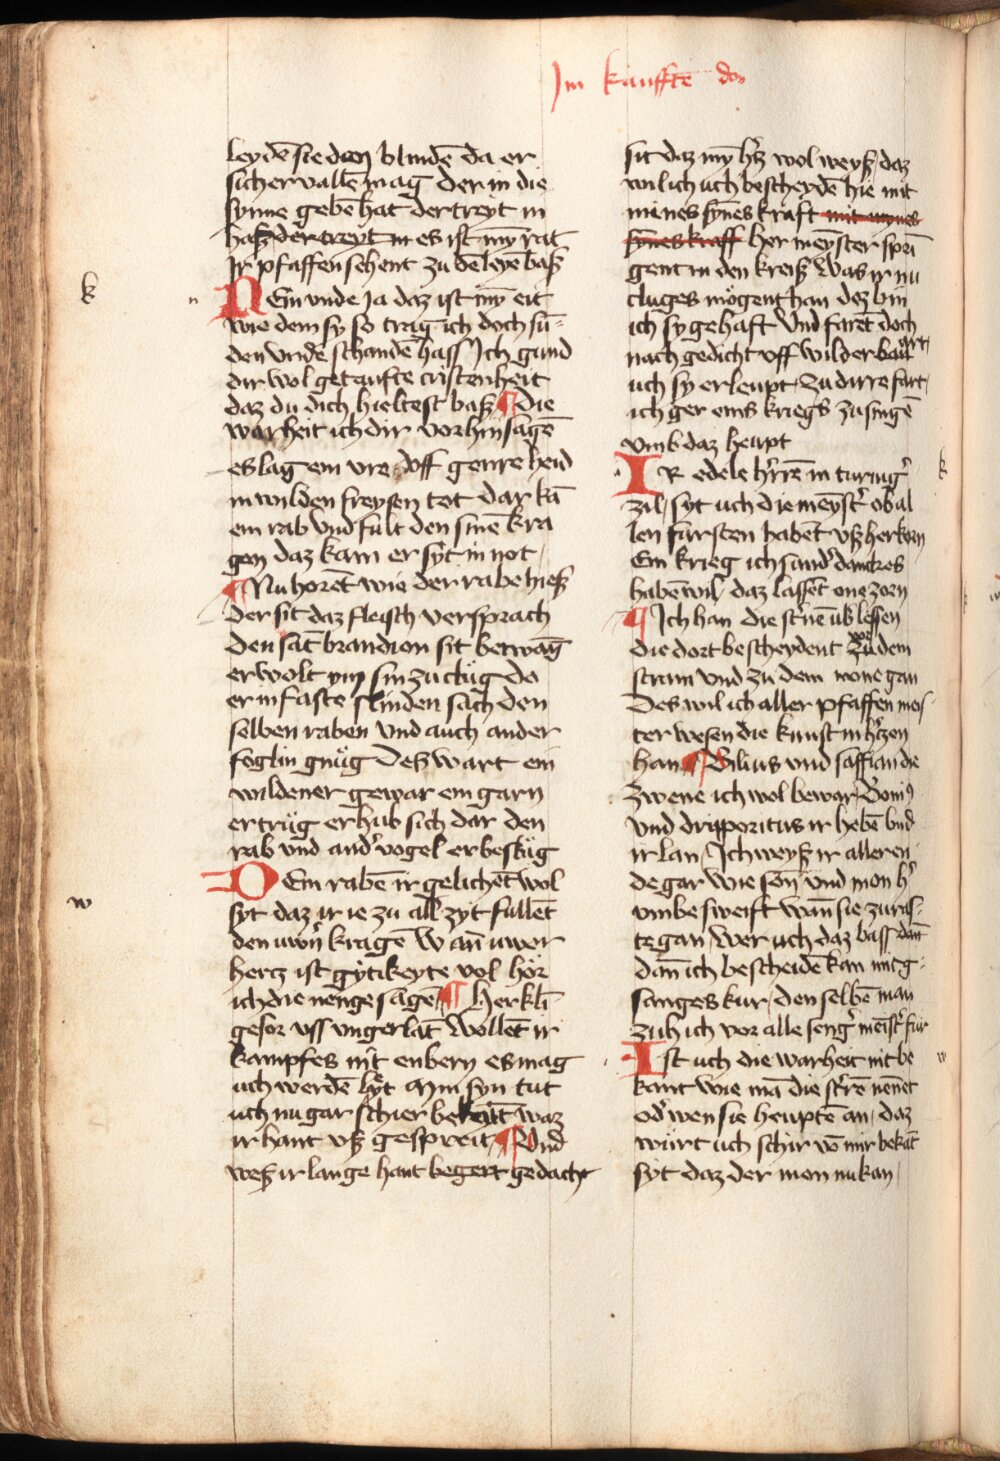 Im kaufftē don
leydē sie den blindē da er
sicher vallē mag der in die
synne gebē hat der treyt in
haß der treyt in es ist mȳ rat
Ir pfaffen sehent zu dē leyē baß
k
n
NEin vnde ja daz ist mȳ eit
wie dem sy so trag ich doch sü-
den vnde schande hass Ich gund
dir wol getaufte cristenheit
daz du dich hieltest baß ¶ Die
warheit ich dir vorhin sagē
es lag ein vre vff genre heid
in wilden freysen tot dar kā
ein rab vnd fult den sinē kra
gen daz kam er syt in not
¶ Nu horēt wie der rabe hieß
der sit daz fleisch versprach
Den sāt brandion sit betwāg
er wolt ym sin zu clüg do
er in faste slinden sach den
selben raben vnd auch ander
foglin gnüg Des wart ein
wildener gewar ein garn
er trüg er hub sich dar den
rab vnd andˀ vogel er beslüg
w
DEm rabē ir gelichēt wol
syt daz ir ie zu all zyt fullēt
den uwn̄ kragē Wan̄ uwer
hercz ist gytikeyte vol hör
ich die menge sagē ¶ Her kli
gesor vss vngerlāt Wollēt ir
kampfes nit enbern es mag
uch werdē lyt Min syn tut
uch nu gar schier bekeyt waz
ir hant vß gespreit ¶ Vnd
weß ir lange hant begert gedacht
sit daz mȳ hˀz wol weyß daz
wil ich uch bescheydē hie mit
mines synes kraft mit mynes
synes kraff her meyster spri
gent in den kreiß Was ir nu
cluges mögent han dez bin
ich sy gehaft Vnd farēt doch
nach gedicht vff wilder ban art
uch sy erleupt zu dirre fart
ich ger eins kriegs zu singē
vmb daz heupt
k
IR edele hˀrrē in turingˀ
zil syt uch die meystˀ ob al
len fursten habēt vß herkorn
Ein krieg ich sundˀ danckes
habē wil daz lassēt one zorn
¶ Ich han die stˀnē üb lessen
die dort bescheydent vor zu dem
stram vnd zu dem mone gan
Des wil ich aller pfaffen meis
ter wesen die kunst in hˀzen
han ¶ Vilius vnd saffian die
zwene ich wol bewar
vnd dripporitus ir hebē vnd
ir lan Ich weyß ir alleren
de gar wie son̄ vnd mon hˀ
vmbe sweift wan̄ sie zu ras-
te gan Wer uch daz bass dan̄
dan̄ ich bescheidē kan mit g-
sanges kur den selbē man
zuh ich vor alle sengˀ meistˀ für
w
Ist uch die warheit nit be
kant wie mā die stˀrē nenēt
odˀ wen sie heuptē an daz
würt uch schir vō mir bekāt
syt daz der mon nu kan